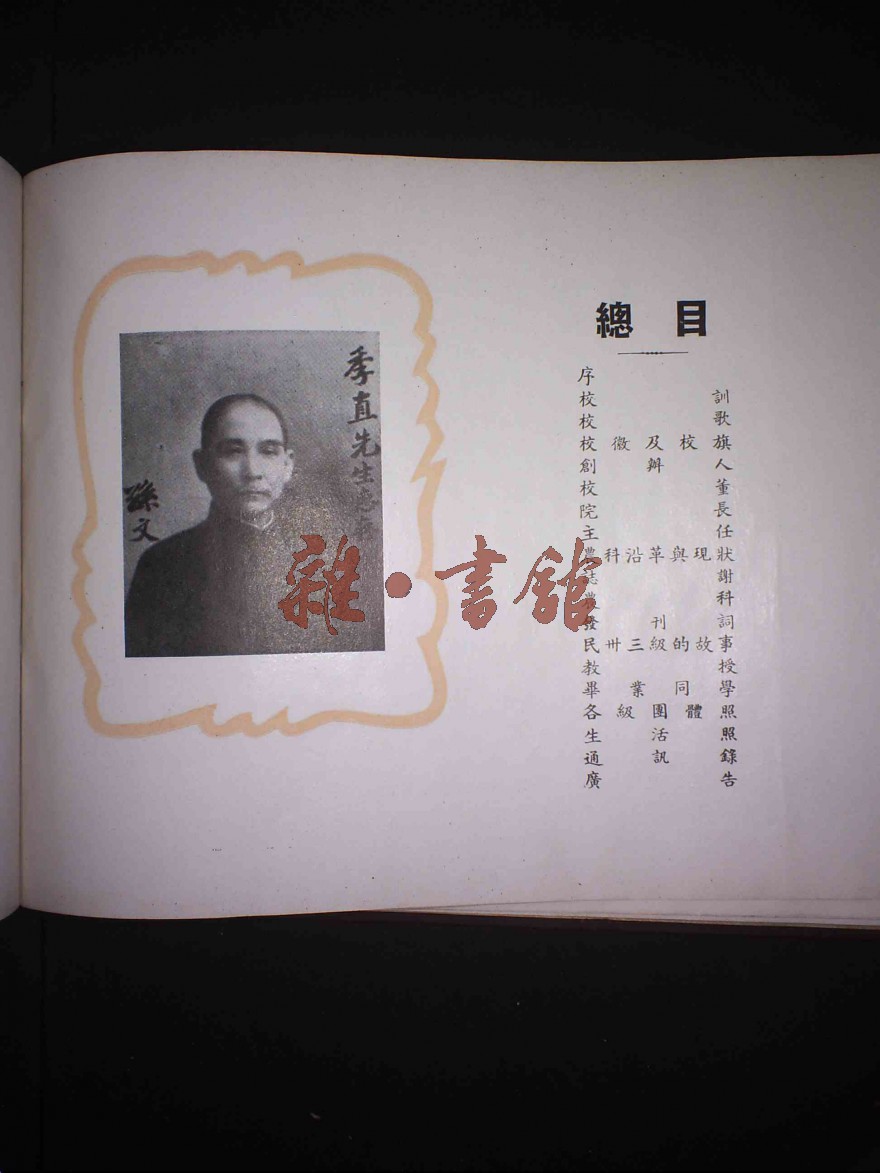 季直先生惠存
孫文
總目
序
校訓
校歌
校徽及校旗
創辦人
校董
院長
主任
農科沿革與現狀
誌謝
農科
發刊詞
民卅三級的故事
教授
畢業同學
各級團體照
生活照
通訊錄
廣告
雜·書館